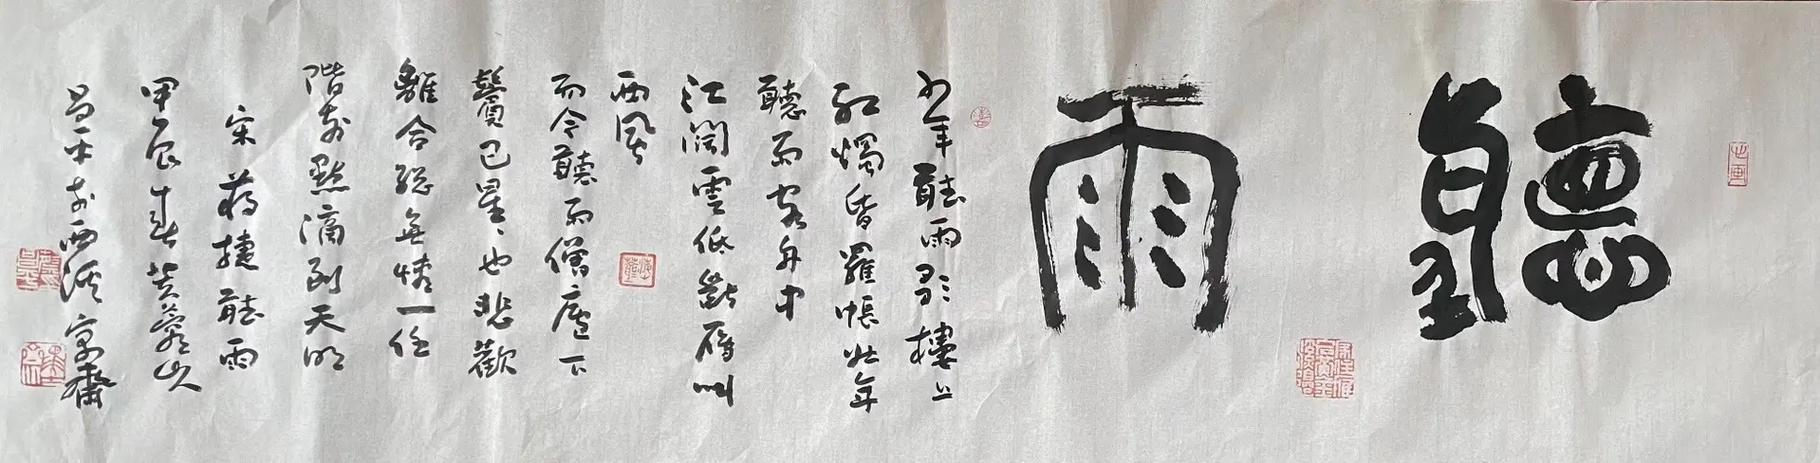 聽雨
少年聽雨歌樓上
紅燭昏羅帳壯年
聽雨客舟中
江闊雲低斷雁叫
西風
而今聽雨僧廬下
鬢已星〻也悲歡
離合總無情一任
階前點滴到天明
宋蔣捷聽雨
甲辰春
西溪